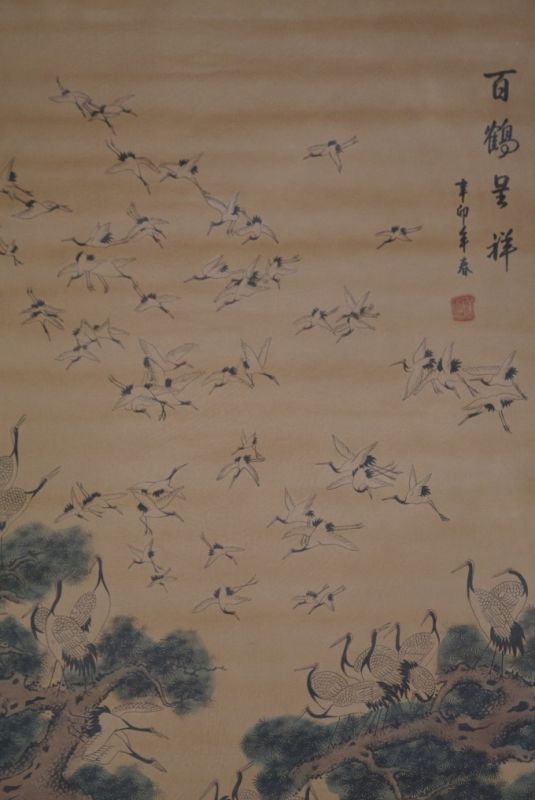 百鶴呈祥
辛卯年春